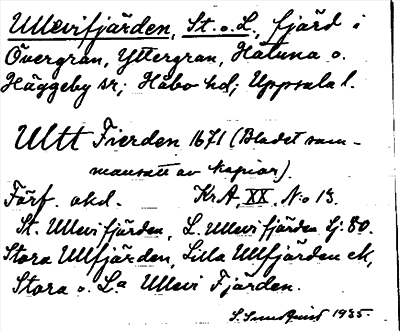 Ullevifjärden, St. o. L., fjärd i
Övergran, Yttergran, Håtuna o.
Häggeby sr; Håbo hd; Uppsala l.
Ultt Fierden 1671 (Bladet sam-
mansatt av kopior).
Förf. okd. KrA, XX. No 13.
St. Ullevifjärden, L. Ullevifjärden Gj. 80.
Stora Ullfjärden, Lilla Ullfjärden ek,
Stora o. La Ullevi Fjärden.
1935.